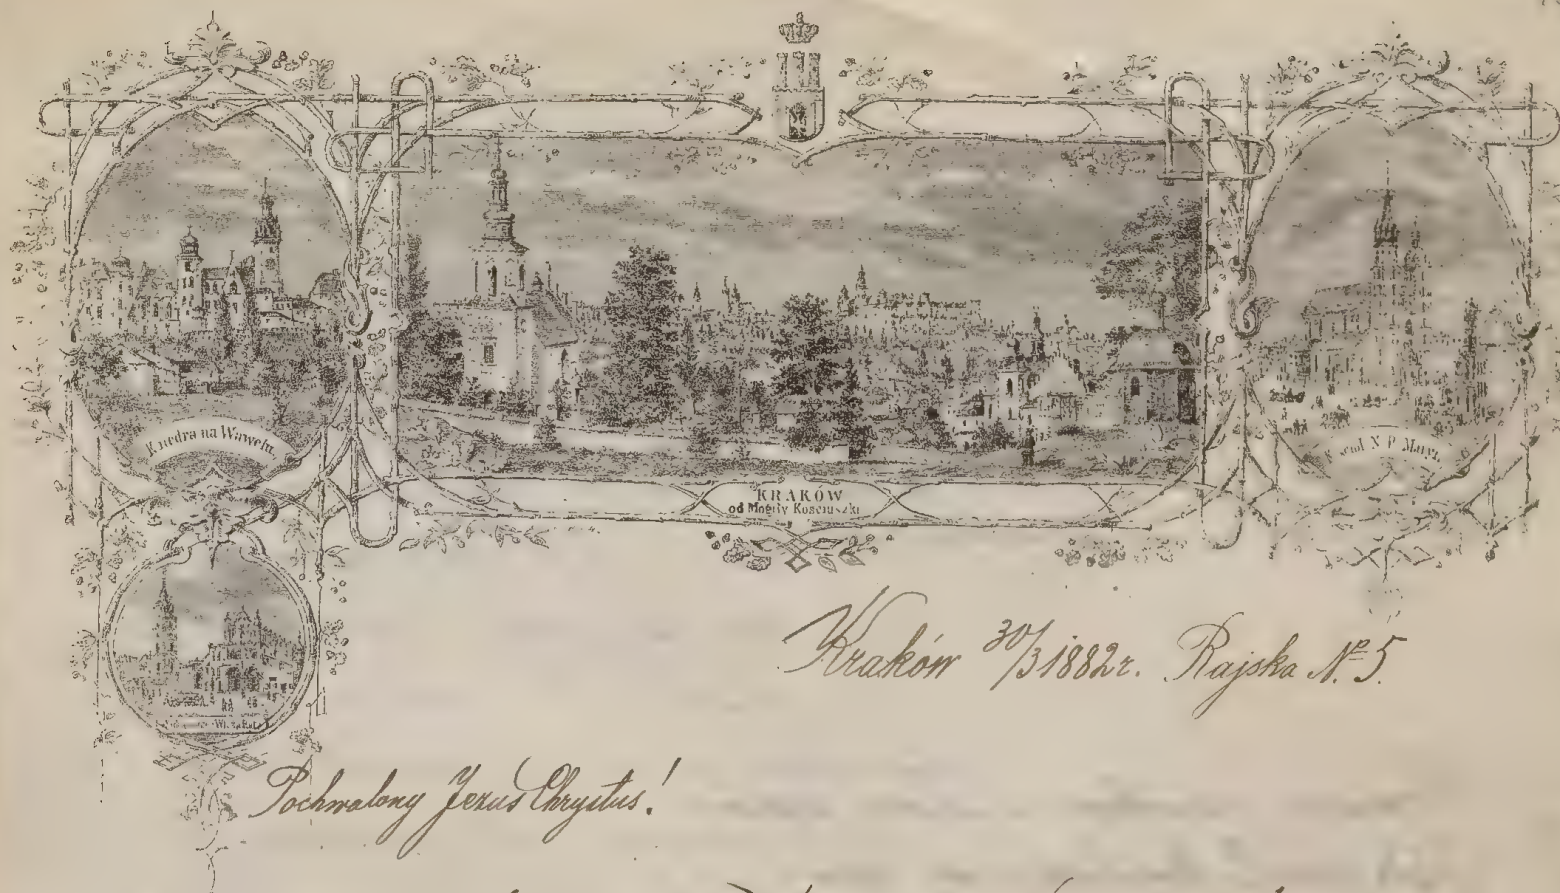 Katedra na Wawelu.
KRAKÓW
od Mogiły Kościuszki
Kościół N. P. Maryi
Kraków 30/3 1882 r. Rajska № 5.
Pochwalony Jezus Chrystus!